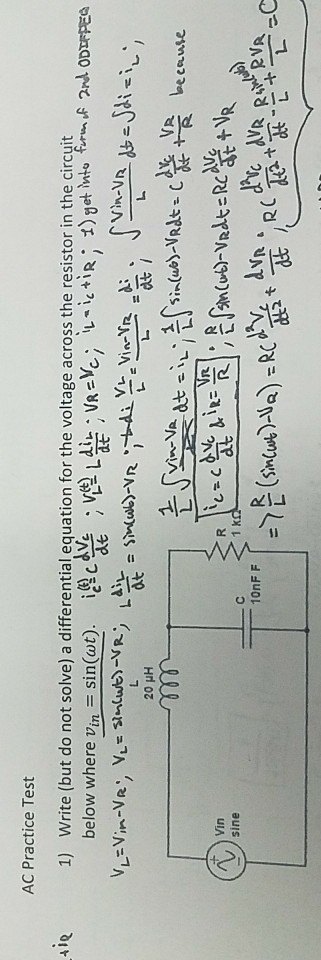 AC Practice Test
+iR
1) Write (but do not solve) a differential equation for the voltage across the resistor in the circuit
below where vin = sin(ωt). i(t)c = C dVc/dt ; V(t)L = L diL/dt ; VR = Vc ; iL = ic + iR ; 1) get into form of 2nd ODIFFEQ
VL = Vin - VR ; VL = sin(ωt) - VR ; L diL/dt = sin(ωt) - VR ; VL/L = Vin - VR/L = di/dt ; ∫ Vin - VR/L dt = ∫ di = iL ;
1/L ∫ Vin - VR dt = iL ; 1/L ∫ sin(ωt) - VR dt = C dVc/dt + VR/R because
ic = C dVc/dt & iR = VR/R ; R/L ∫ sin(ωt) - VR dt = RC dVc/dt + VR
=> R/L (sin(ωt) - VR) = RC d²Vc/dt² + dVR/dt ; RC d²Vc/dt² + dVR/dt - R sin(ωt)/L + RVR/L = 0
L
20 μH
R
1 kΩ
C
10nF F
Vin
sine